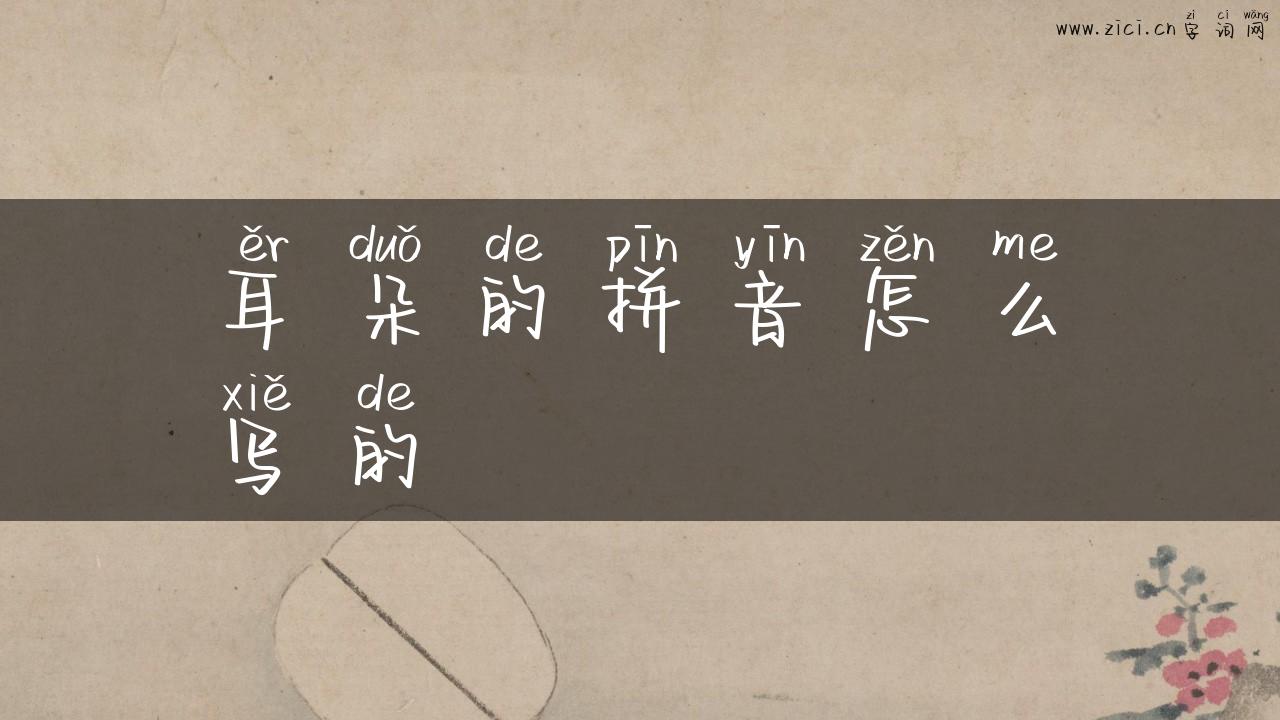 zì cí wǎng
www.zici.cn 字词网
ěr duǒ de pīn yīn zěn me
耳朵的拼音怎么
xiě de
写的